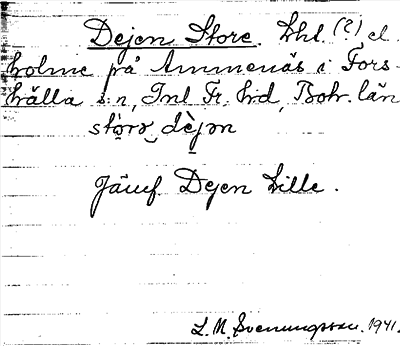 Dejen Store. Skl. (?) el.
holme på Ammenäs i Fors-
hälla s:n, Inl. Fr. hd, Boh. län
storə dèjən
Jämf. Dejen Lille.
L. M. Svenungsson. 1941.